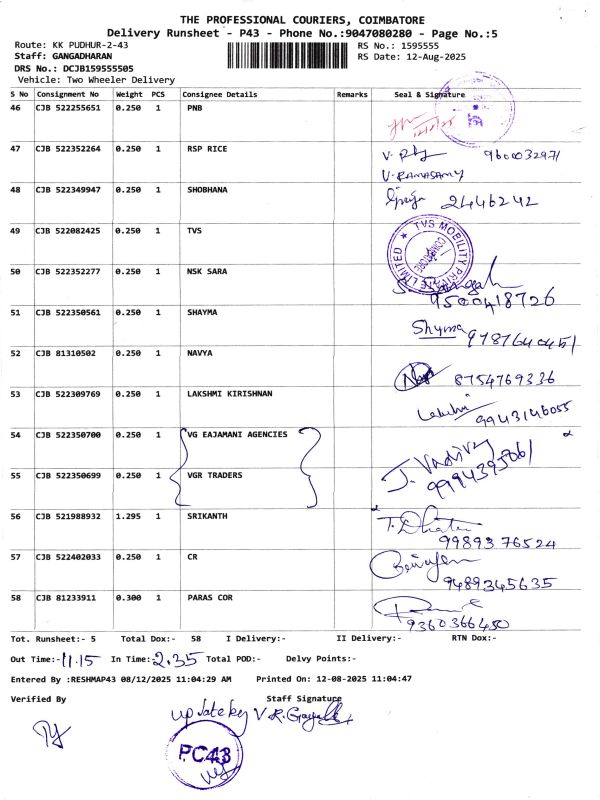 THE PROFESSIONAL COURIERS, COIMBATORE
Delivery Runsheet - P43 - Phone No.:9047080280 - Page No.:5
Route: KK PUDHUR-2-43 RS No.: 1595555
Staff: GANGADHARAN RS Date: 12-Aug-2025
DRS No.: DCJB159555505
Vehicle: Two Wheeler Delivery
S No Consignment No Weight PCS Consignee Details Remarks Seal & Signature
46 CJB 522255651 0.250 1 PNB
47 CJB 522352264 0.250 1 RSP RICE 9600032971
V. RAMASAMY
48 CJB 522349947 0.250 1 SHOBHANA 2446242
49 CJB 522082425 0.250 1 TVS TVS MOBILITY PRIVATE LIMITED
50 CJB 522352277 0.250 1 NSK SARA
9500418726
51 CJB 522350561 0.250 1 SHAYMA Shyma
9787640451
52 CJB 81310502 0.250 1 NAVYA 8754769336
53 CJB 522309769 0.250 1 LAKSHMI KIRISHNAN Lakshmi 9943146055
54 CJB 522350700 0.250 1 VG EAJAMANI AGENCIES
55 CJB 522350699 0.250 1 VGR TRADERS
56 CJB 521988932 1.295 1 SRIKANTH
99893 76524
57 CJB 522402033 0.250 1 CR
9489345635
58 CJB 81233911 0.300 1 PARAS COR
9360366450
Tot. Runsheet:- 5 Total Dox:- 58 I Delivery:- II Delivery:- RTN Dox:-
Out Time:- 11.15 In Time:- 2.35 Total POD:- Delvy Points:-
Entered By :RESHMAP43 08/12/2025 11:04:29 AM Printed On: 12-08-2025 11:04:47
Verified By Staff Signature
update by V.R.
PC43